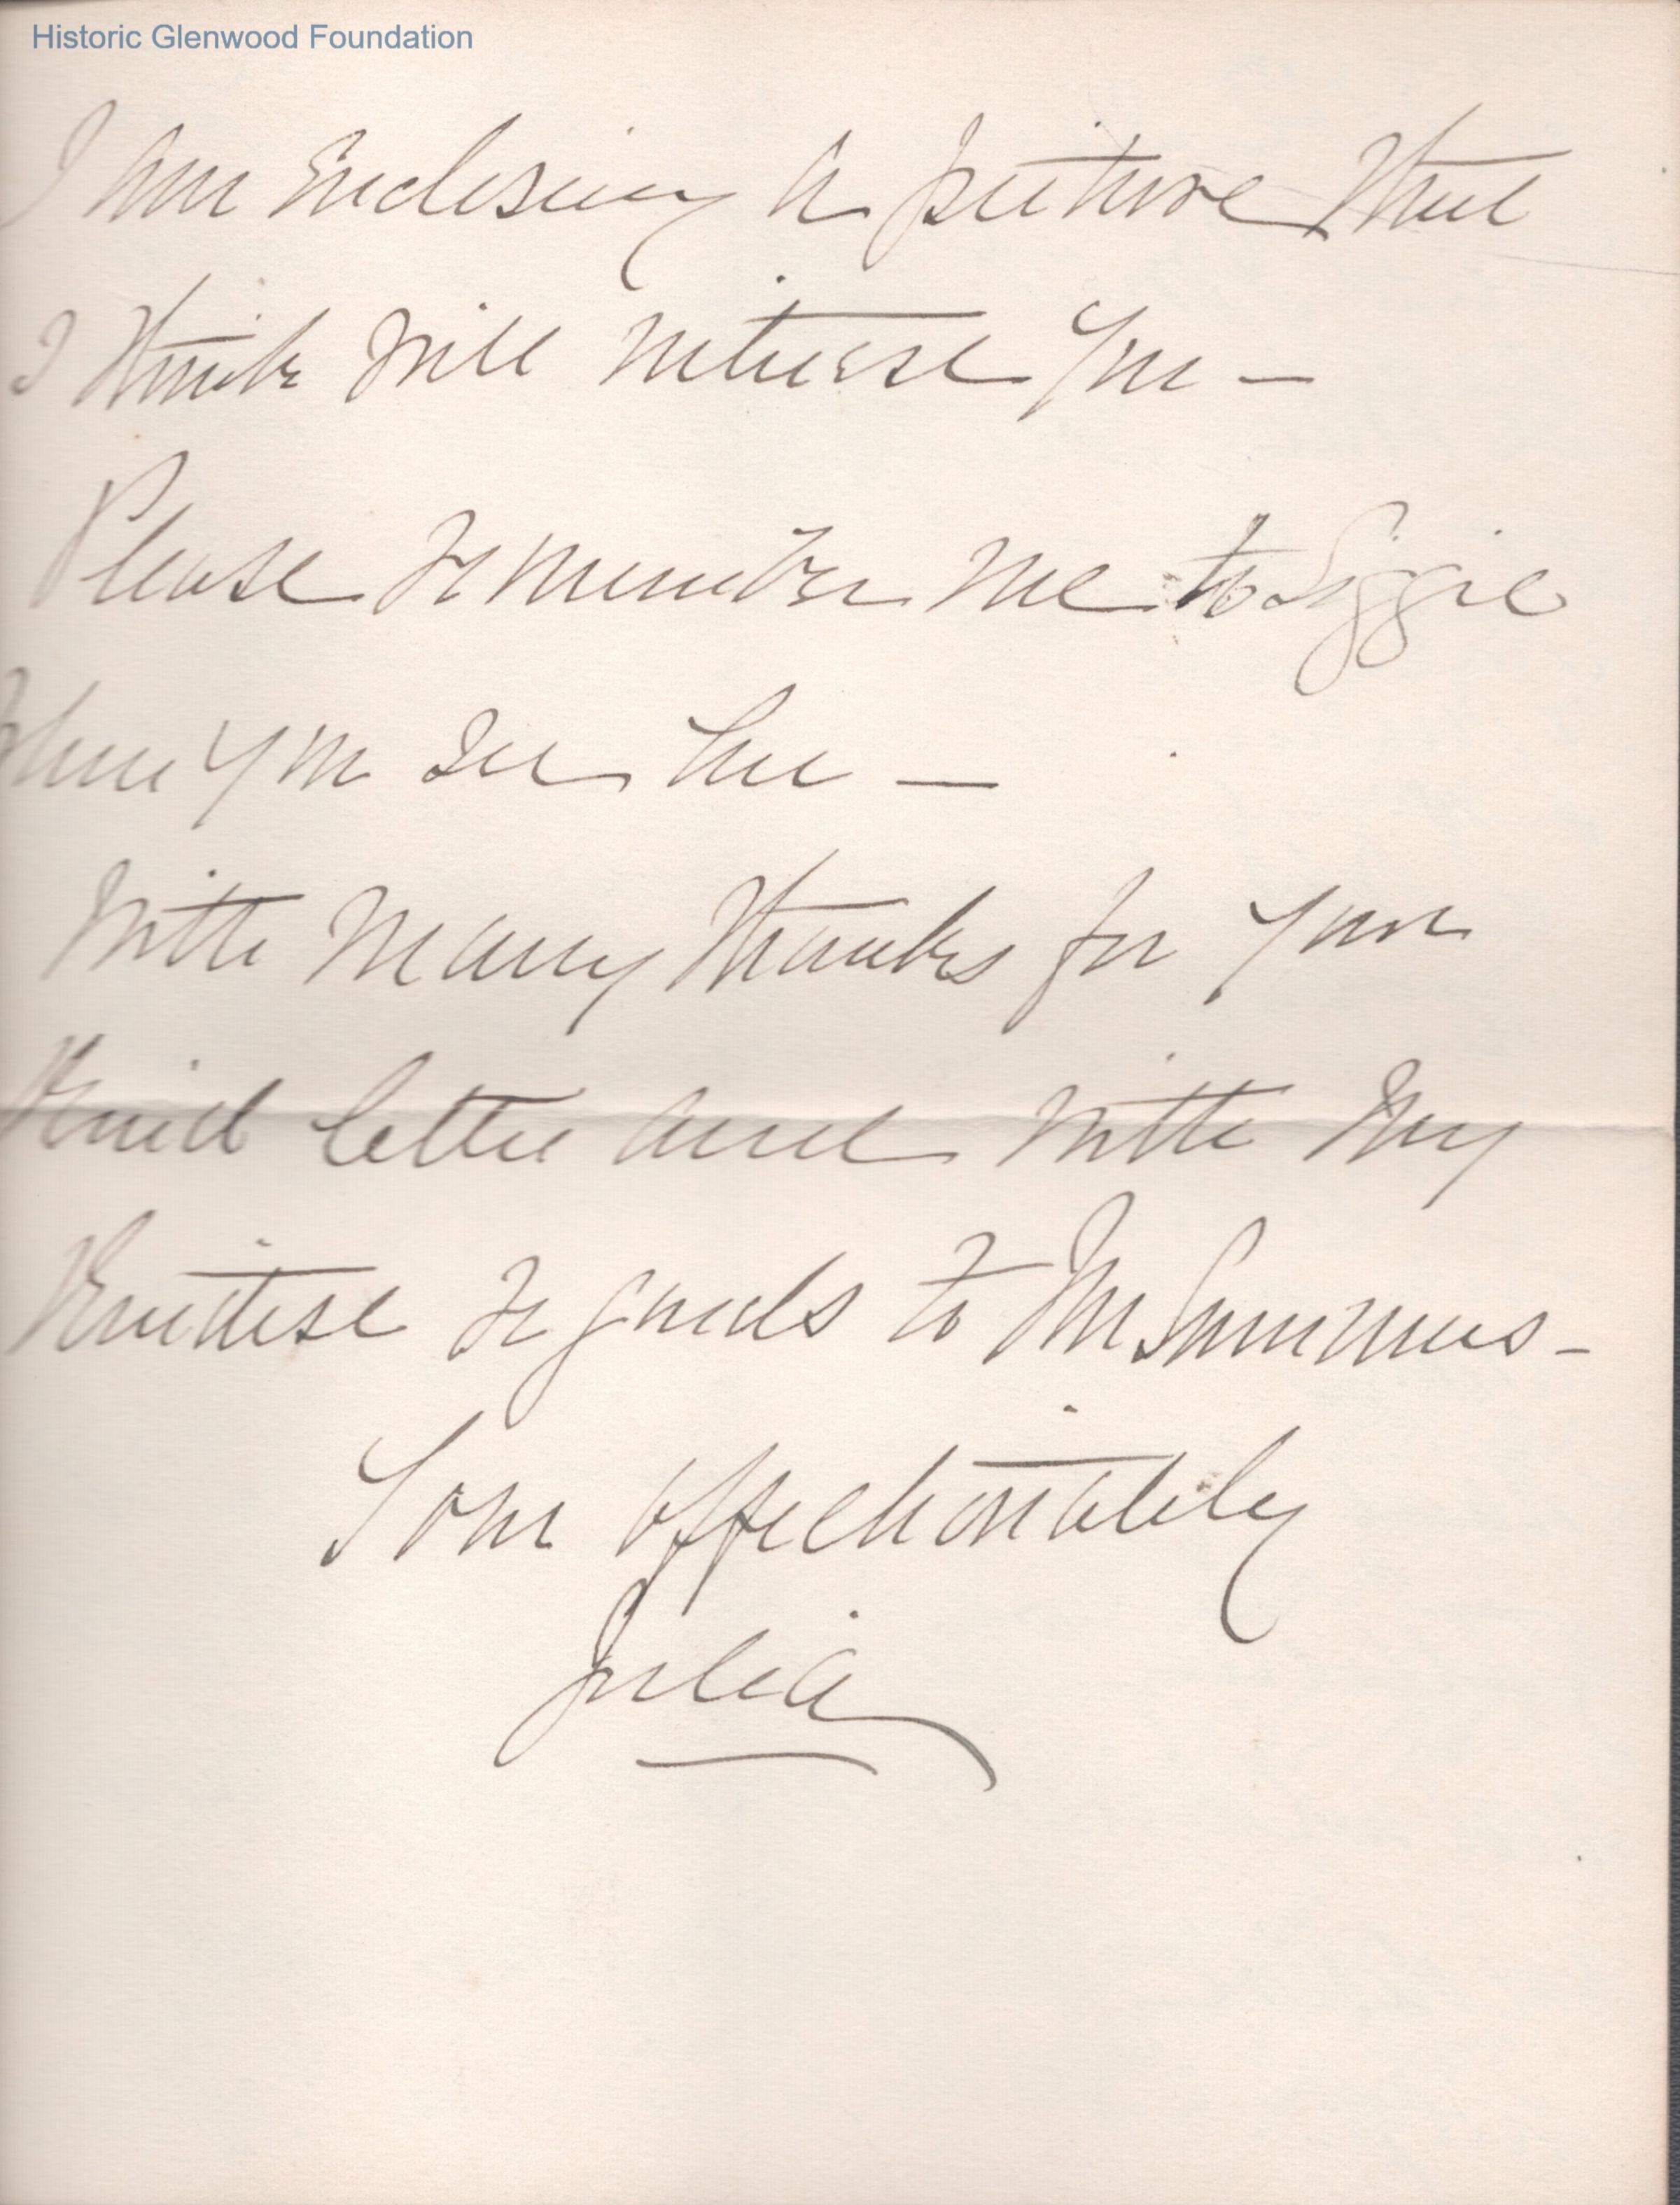 Historic Glenwood Foundation
I am enclosing a picture that
I think will interest you —
Please remember me to Siggie
when you see her —
With many thanks for your
kind letter and with my
kindest regards to Mr Summers –
Your affectionately
Julia